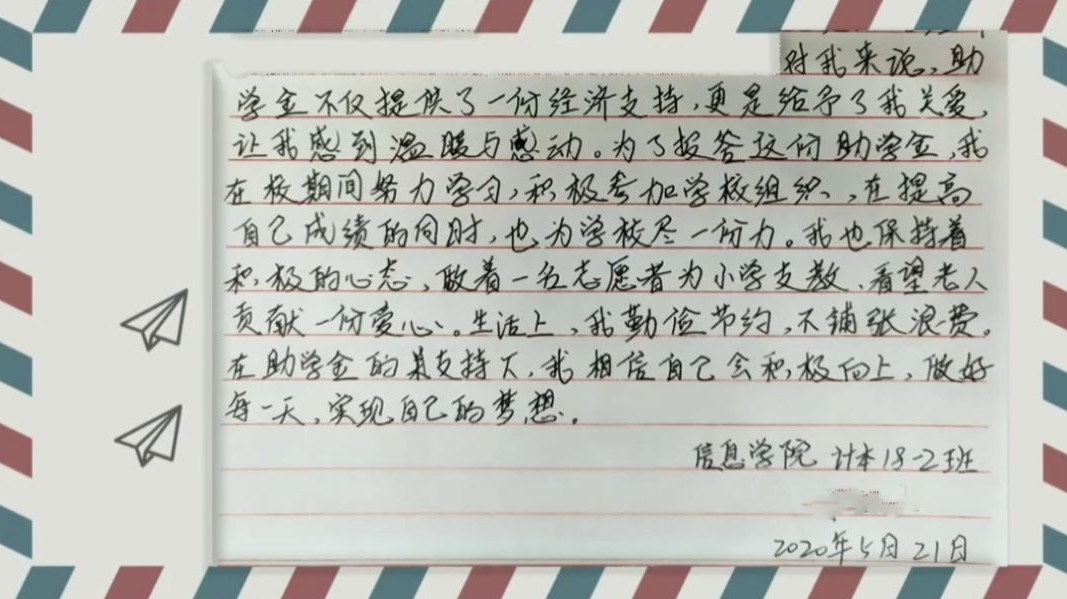 对我来说，助
学金不仅提供了一份经济支持，更是给予了我关爱，
让我感到温暖与感动。为了报答这份助学金，我
在校期间努力学习，积极参加学校组织，在提高
自己成绩的同时，也为学校尽一份力。我也保持着
积极的心态，做着一名志愿者为小学支教、看望老人
贡献一份爱心。生活上，我勤俭节约，不铺张浪费。
在助学金的支持下，我相信自己会积极向上，做好
每一天，实现自己的梦想。
信息学院 计本18-2班
2020年5月21日